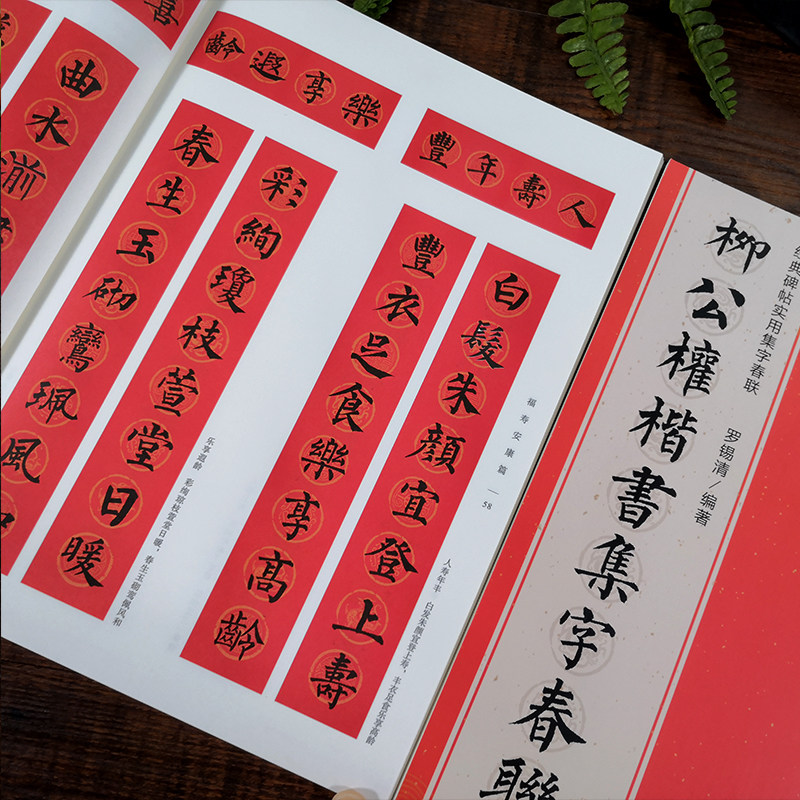 柳公權楷書集字春聯
经典碑帖实用集字春联
罗锡清/编著
人壽年豐
白髮朱顏宜登上壽
豐衣足食樂享高齡
人寿年丰 白发朱颜宜登上寿,丰衣足食乐享高龄
福寿安康篇 — 58
樂享遐齡
彩絢瓊枝萱堂日暖
春生玉砌鸞珮風
乐享遐龄 彩绚琼枝萱堂日暖,春生玉砌鸾佩风和
喜
曲水湔